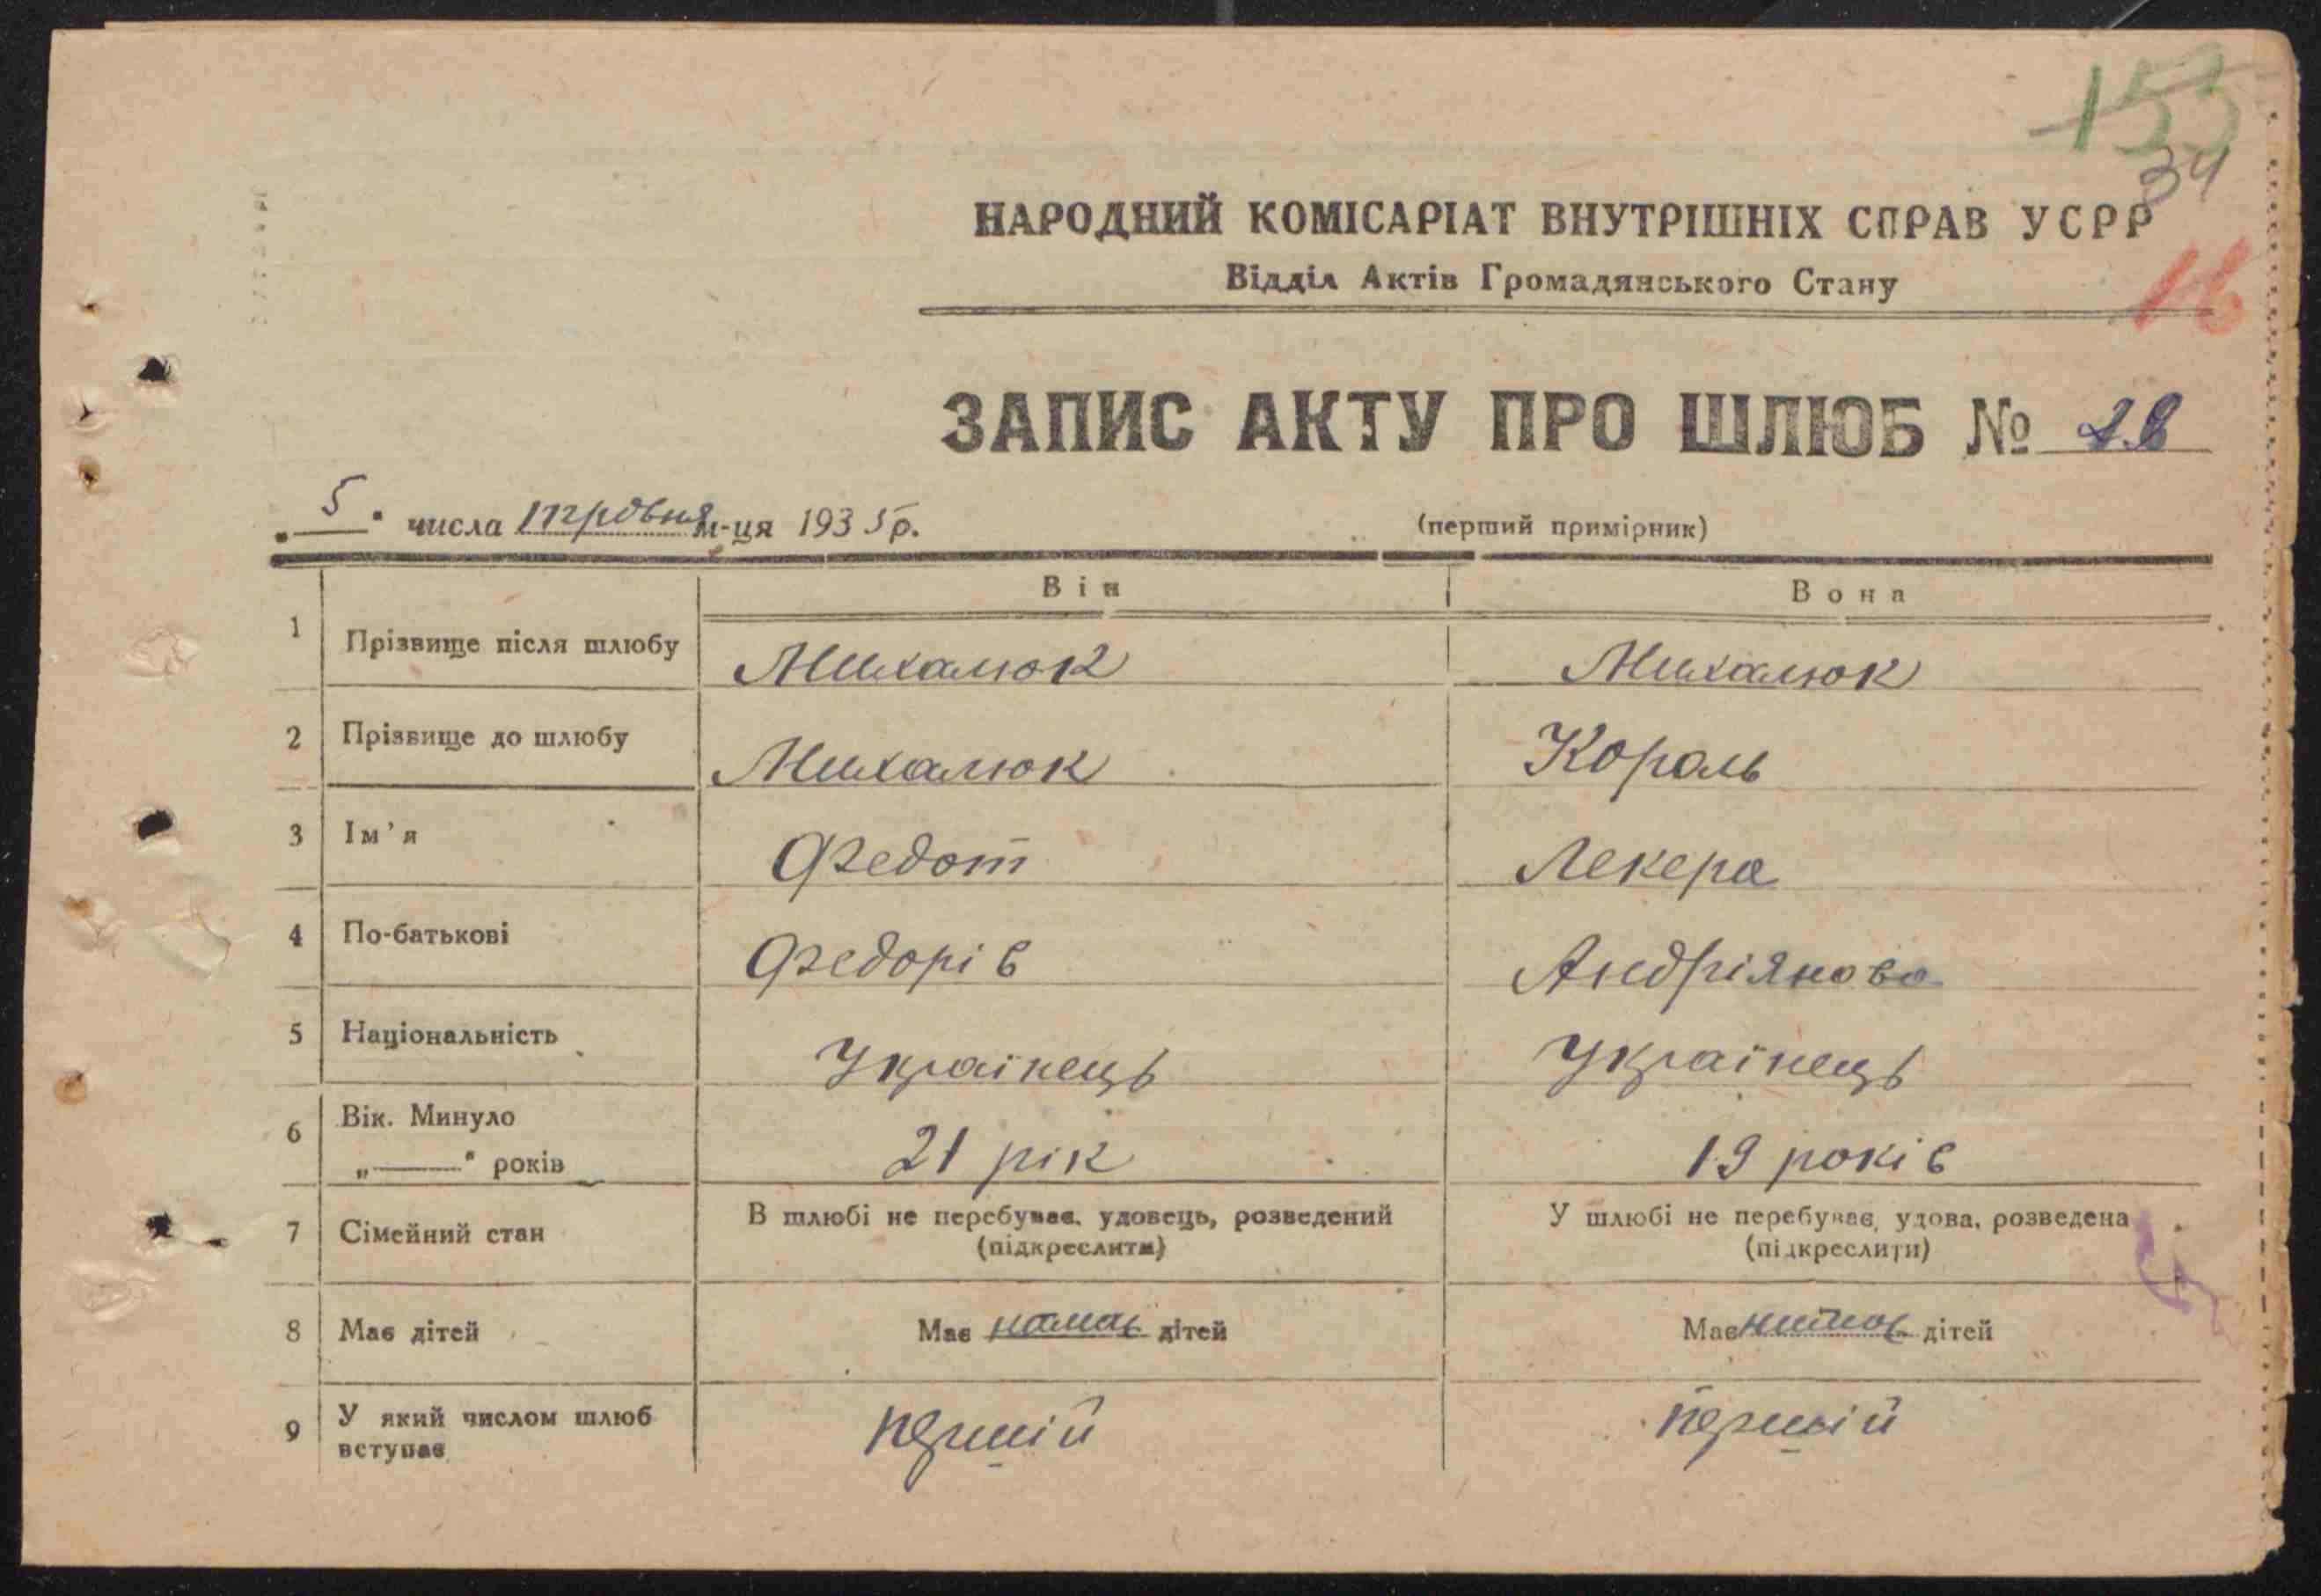 153
34
НАРОДНИЙ КОМІСАРІАТ ВНУТРІШНІХ СПРАВ УСРР
Відділ Актів Громадянського Стану
16
ЗАПИС АКТУ ПРО ШЛЮБ №
„5" числа травня м-ця 1935 р.
(перший примірник)
Він Вона
1 Прізвище після шлюбу Михалюк Михалюк
2 Прізвище до шлюбу Михалюк Король
3 Ім'я Федот Лекера
4 По-батькові Федорів Андріянова
5 Національність Українець Українець
6 Вік. Минуло
„——" років 21 рік 19 років
7 Сімейний стан В шлюбі не перебуває, удовець, розведений У шлюбі не перебуває, удова, розведена
(підкреслити) (підкреслити)
8 Має дітей Має немає дітей Має немає дітей
9 У який числом шлюб
вступає першій першій